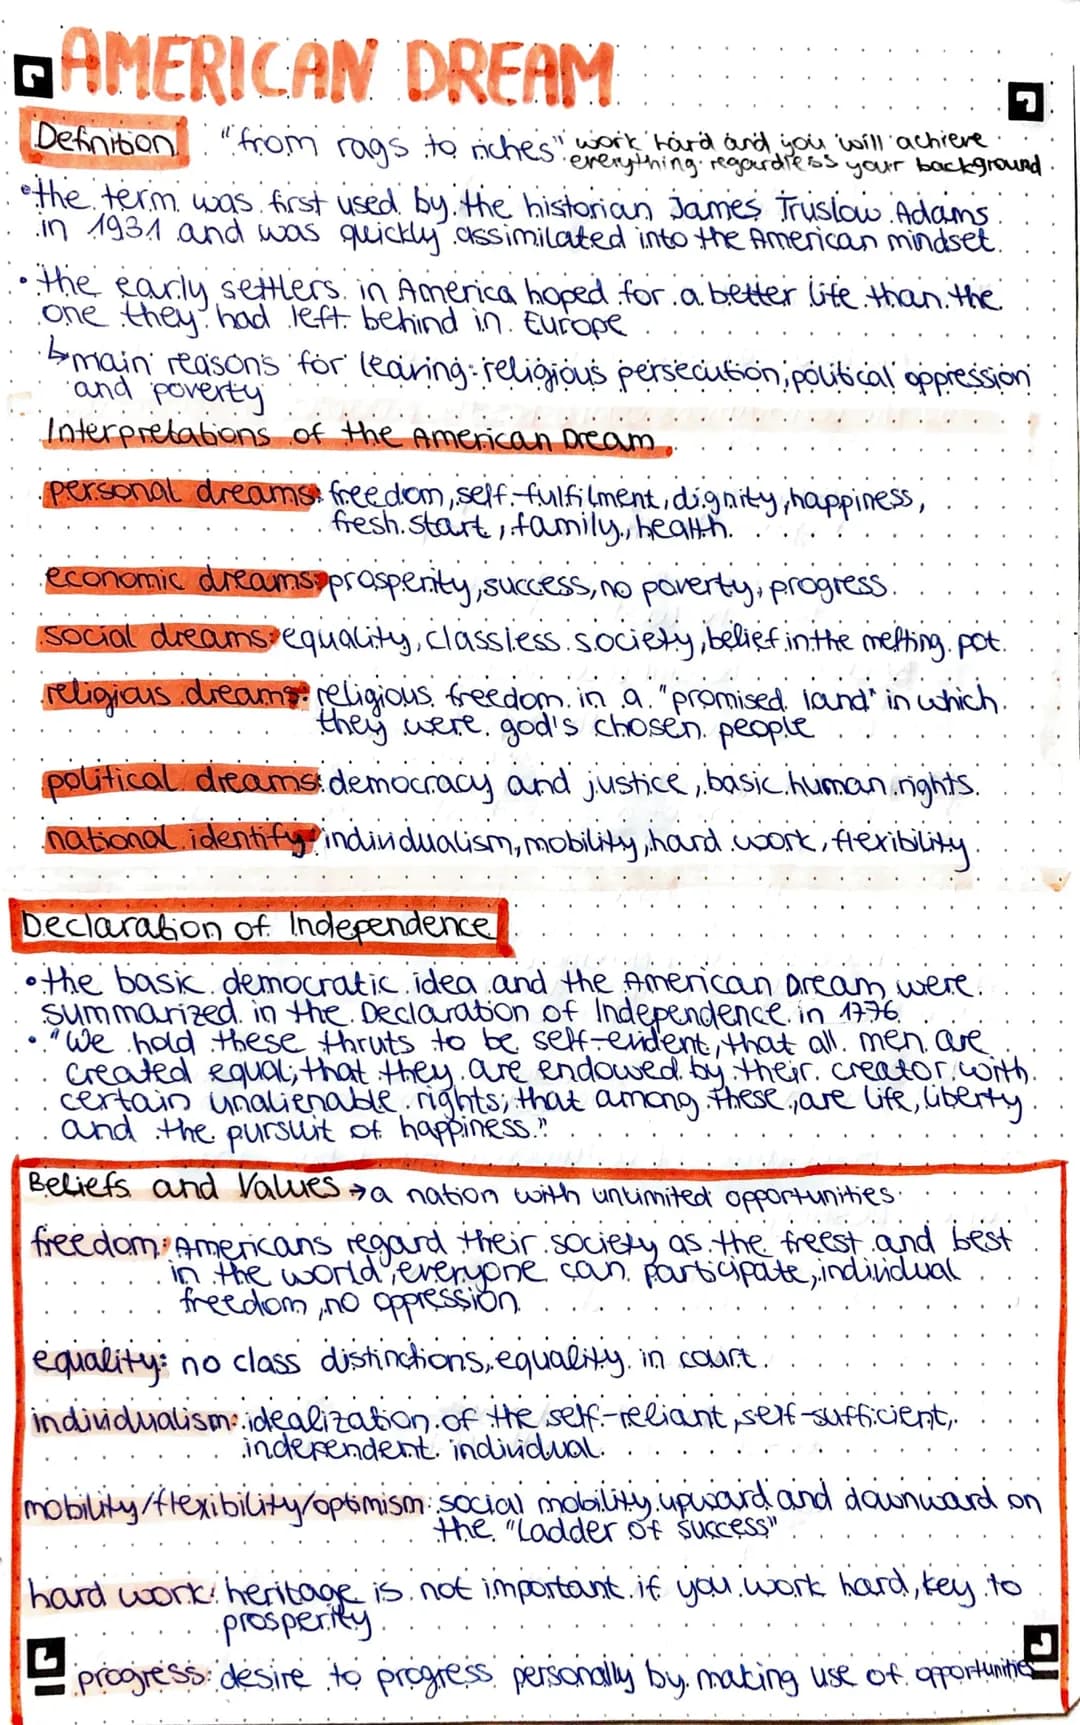 AMERICAN DREAM
Definition "from rags to riches" work hard and you will achieve
everything regardless your background
•the term was first used by the historian James Truslow Adams
in 1931 and was quickly assimilated into the American mindset.
•the early settlers in America hoped for a better life than the
one they had left behind in Europe
↳main reasons for leaving: religious persecution, political oppression
and poverty
Interpretations of the American Dream
personal dreams: freedom, self-fulfilment, dignity, happiness,
fresh start, family, health.
economic dreams: prosperity, success, no poverty, progress
social dreams: equality, classless society, belief in the melting pot.
religious dreams: religious freedom in a "promised land" in which
they were god's chosen people
political dreams: democracy and justice, basic human rights.
national identify: individualism, mobility, hard work, flexibility
Declaration of Independence
•the basic democratic idea and the American Dream were
summarized in the Declaration of Independence in 1776
•"We hold these thruts to be self-evident, that all men are
created equal; that they are endowed by their creator with
certain unalienable rights; that among these, are life, liberty
and the pursuit of happiness."
Beliefs and Values →a nation with unlimited opportunities
freedom: Americans regard their society as the freest and best
in the world, everyone can participate, individual
freedom, no oppression
equality: no class distinctions, equality in court.
individualism: idealization of the self-reliant, self-sufficient,
independent individual.
mobility/flexibility/optimism: social mobility upward and downward on
the "Ladder of success"
hard work: heritage is not important if you work hard, key to
prosperity
progress: desire to progress personally by making use of opportunities